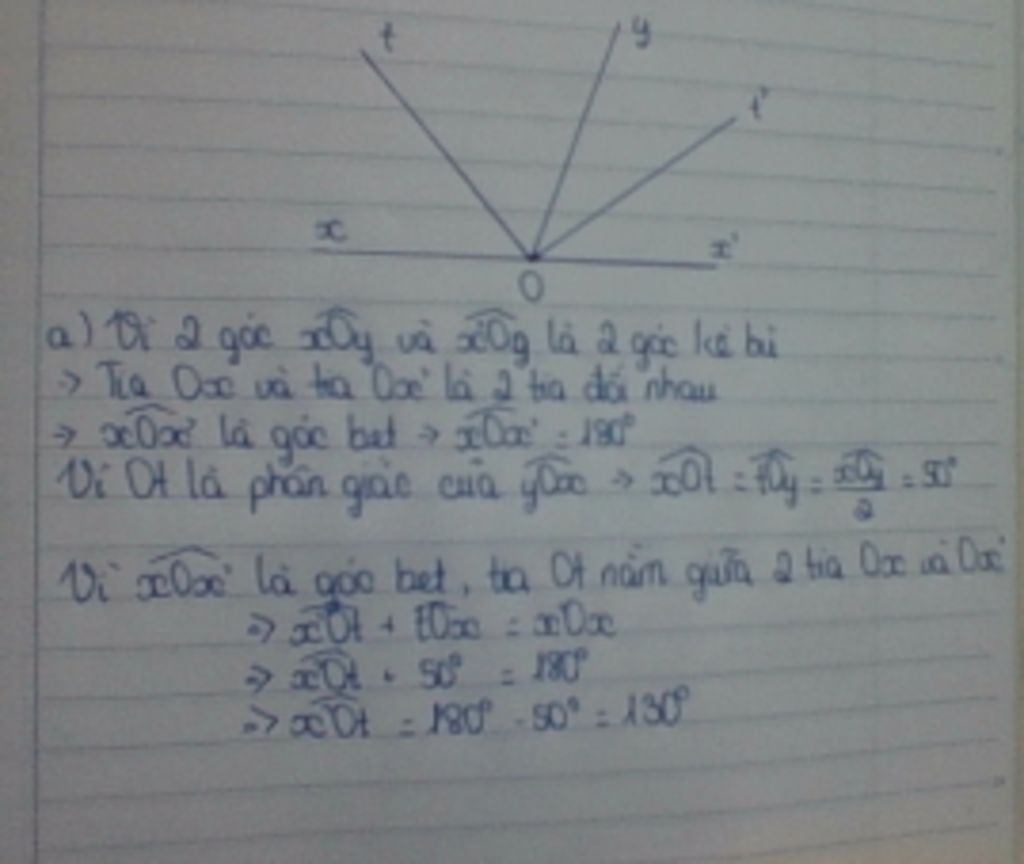 t
y
t'
x
x'
O
a) Vì 2 góc xOy và x'Oy là 2 góc kề bù
→ Tia Ox và tia Ox' là 2 tia đối nhau
→ xOx' là góc bẹt → xOx' = 180°
Vì Ot là phân giác của yOx → xOt = tOy = xOy/2 = 50°
Vì xOx' là góc bẹt, tia Ot nằm giữa 2 tia Ox và Ox'
=> x'Ot + tOx = xOx'
=> x'Ot + 50° = 180°
=> x'Ot = 180° - 50° = 130°